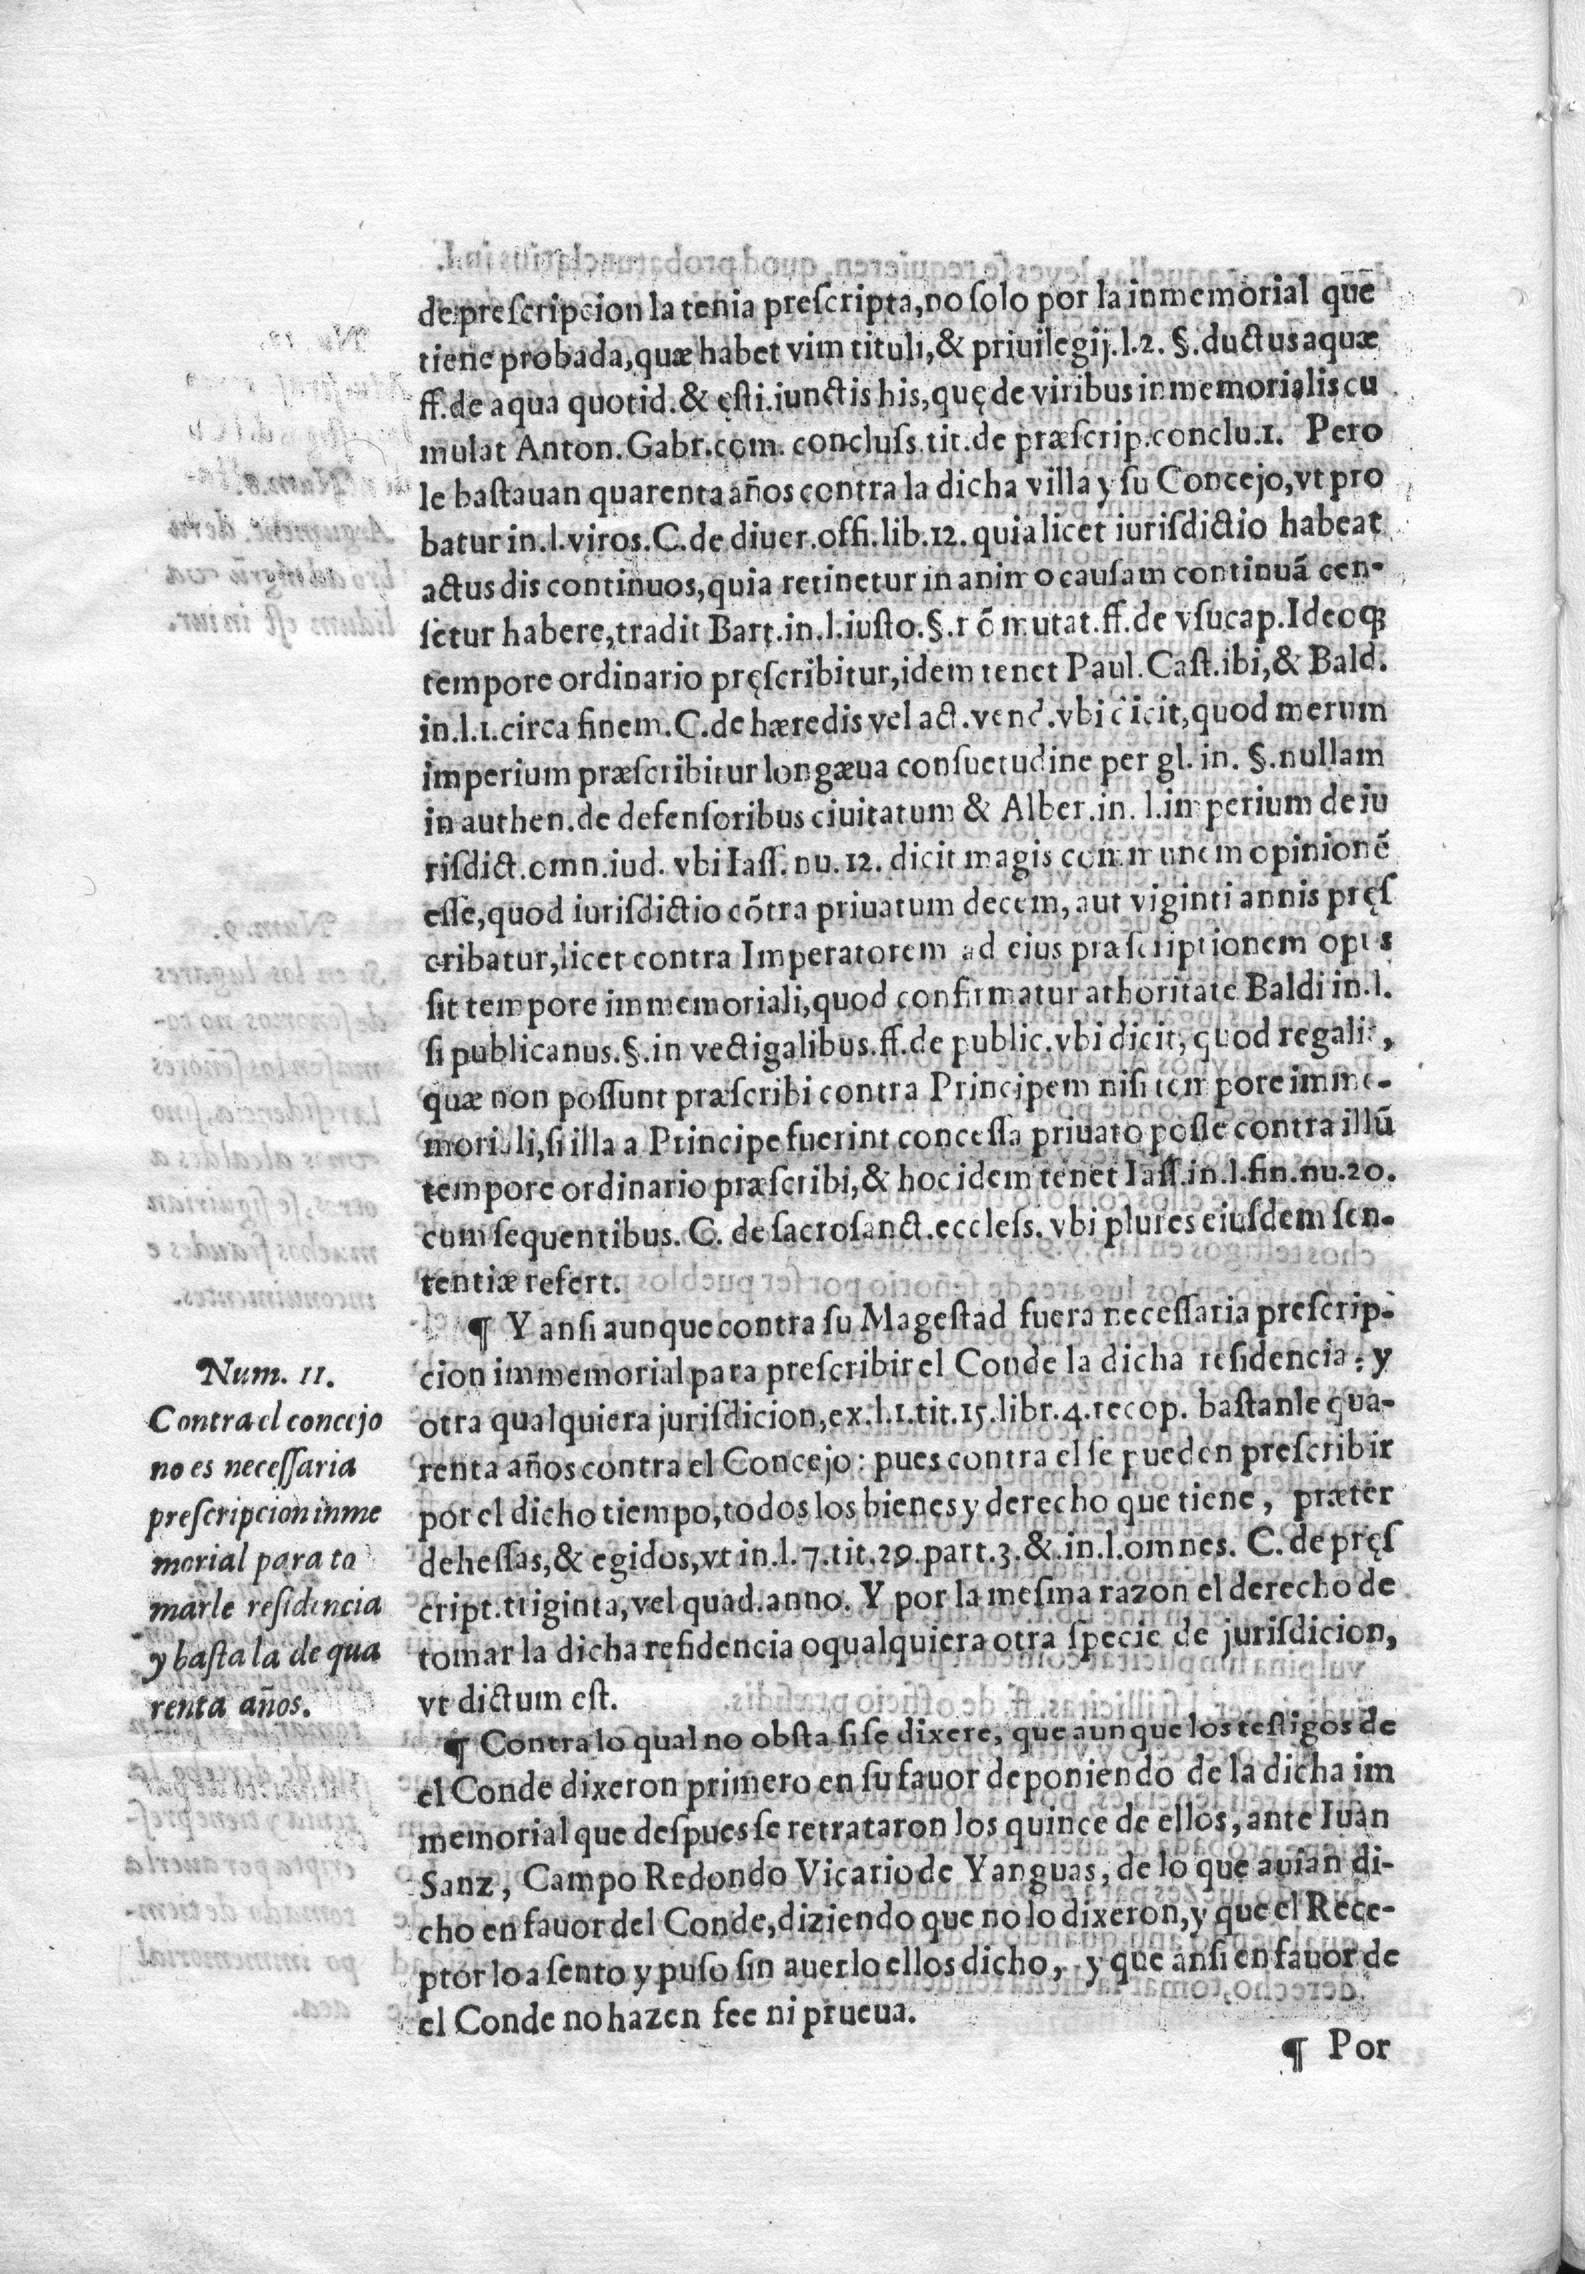 de prescripcion la tenia prescripta, no solo por la inmemorial que
tiene probada, quæ habet vim tituli, & priuilegij. l. 2. §. ductus aquæ
ff. de aqua quotid. & ęsti. iunctis his, quę de viribus inmemorialis cu
mulat Anton. Gabr. com. concluss. tit. de præscrip. conclu. 1. Pero
le bastauan quarenta años contra la dicha villa y su Concejo, vt pro
batur in. l. viros. C. de diuer. offi. lib. 12. quia licet iurisdictio habeat
actus dis continuos, quia retinetur in animo causam continuã cen-
setur habere, tradit Bart. in. l. iusto. §. nõ mutat. ff. de vsucap. Ideoq;
tempore ordinario pręscribitur, idem tenet Paul. Cast. ibi, & Bald.
in. l. 1. circa finem. C. de hæredis vel act. vend. vbi dicit, quod merum
imperium præscribitur longæua consuetudine per gl. in. §. nullam
in authen. de defensoribus ciuitatum & Alber. in. l. imperium de iu
risdict. omn. iud. vbi Iass. nu. 12. dicit magis communem opinionẽ
esse, quod iurisdictio cõtra priuatum decem, aut viginti annis pręs
cribatur, licet contra Imperatorem ad eius præscriptionem opus
sit tempore immemoriali, quod confirmatur athoritate Baldi in. l.
si publicanus. §. in vectigalibus. ff. de public. vbi dicit, quod regalia,
quæ non possunt præscribi contra Principem nisi tempore imme-
moriali, si illa a Principe fuerint concessa priuato posse contra illũ
tempore ordinario præscribi, & hoc idem tenet Iass. in. l. fin. nu. 20.
cum sequentibus. C. de sacrosanct. eccless. vbi plures eiusdem sen-
tentiæ refert.
¶ Y ansi aunque contra su Magestad fuera necessaria prescrip-
cion immemorial para prescribir el Conde la dicha residencia, y
otra qualquiera jurisdicion, ex. l. 1. tit. 15. libr. 4. recop. bastanle qua-
renta años contra el Concejo: pues contra el se pueden prescribir
por el dicho tiempo, todos los bienes y derecho que tiene, præter
dehessas, & egidos, vt in. l. 7. tit. 29. part. 3. &. in. l. omnes. C. de pręs
cript. triginta, vel quad. anno. Y por la mesma razon el derecho de
tomar la dicha residencia o qualquiera otra specie de jurisdicion,
vt dictum est.
Num. 11.
Contra el concejo
no es necessaria
prescripcion inme
morial para to
marle residencia
y basta la de qua
renta años.
¶ Contra lo qual no obsta si se dixere, que aunque los testigos de
el Conde dixeron primero en su fauor deponiendo de la dicha im
memorial que despues se retrataron los quince de ellos, ante Iuan
Sanz, Campo Redondo Vicario de Yanguas, de lo que auian di-
cho en fauor del Conde, diziendo que no lo dixeron, y que el Rece-
ptor lo asento y puso sin auerlo ellos dicho, y que ansi en fauor de
el Conde no hazen fee ni prueua.
¶ Por